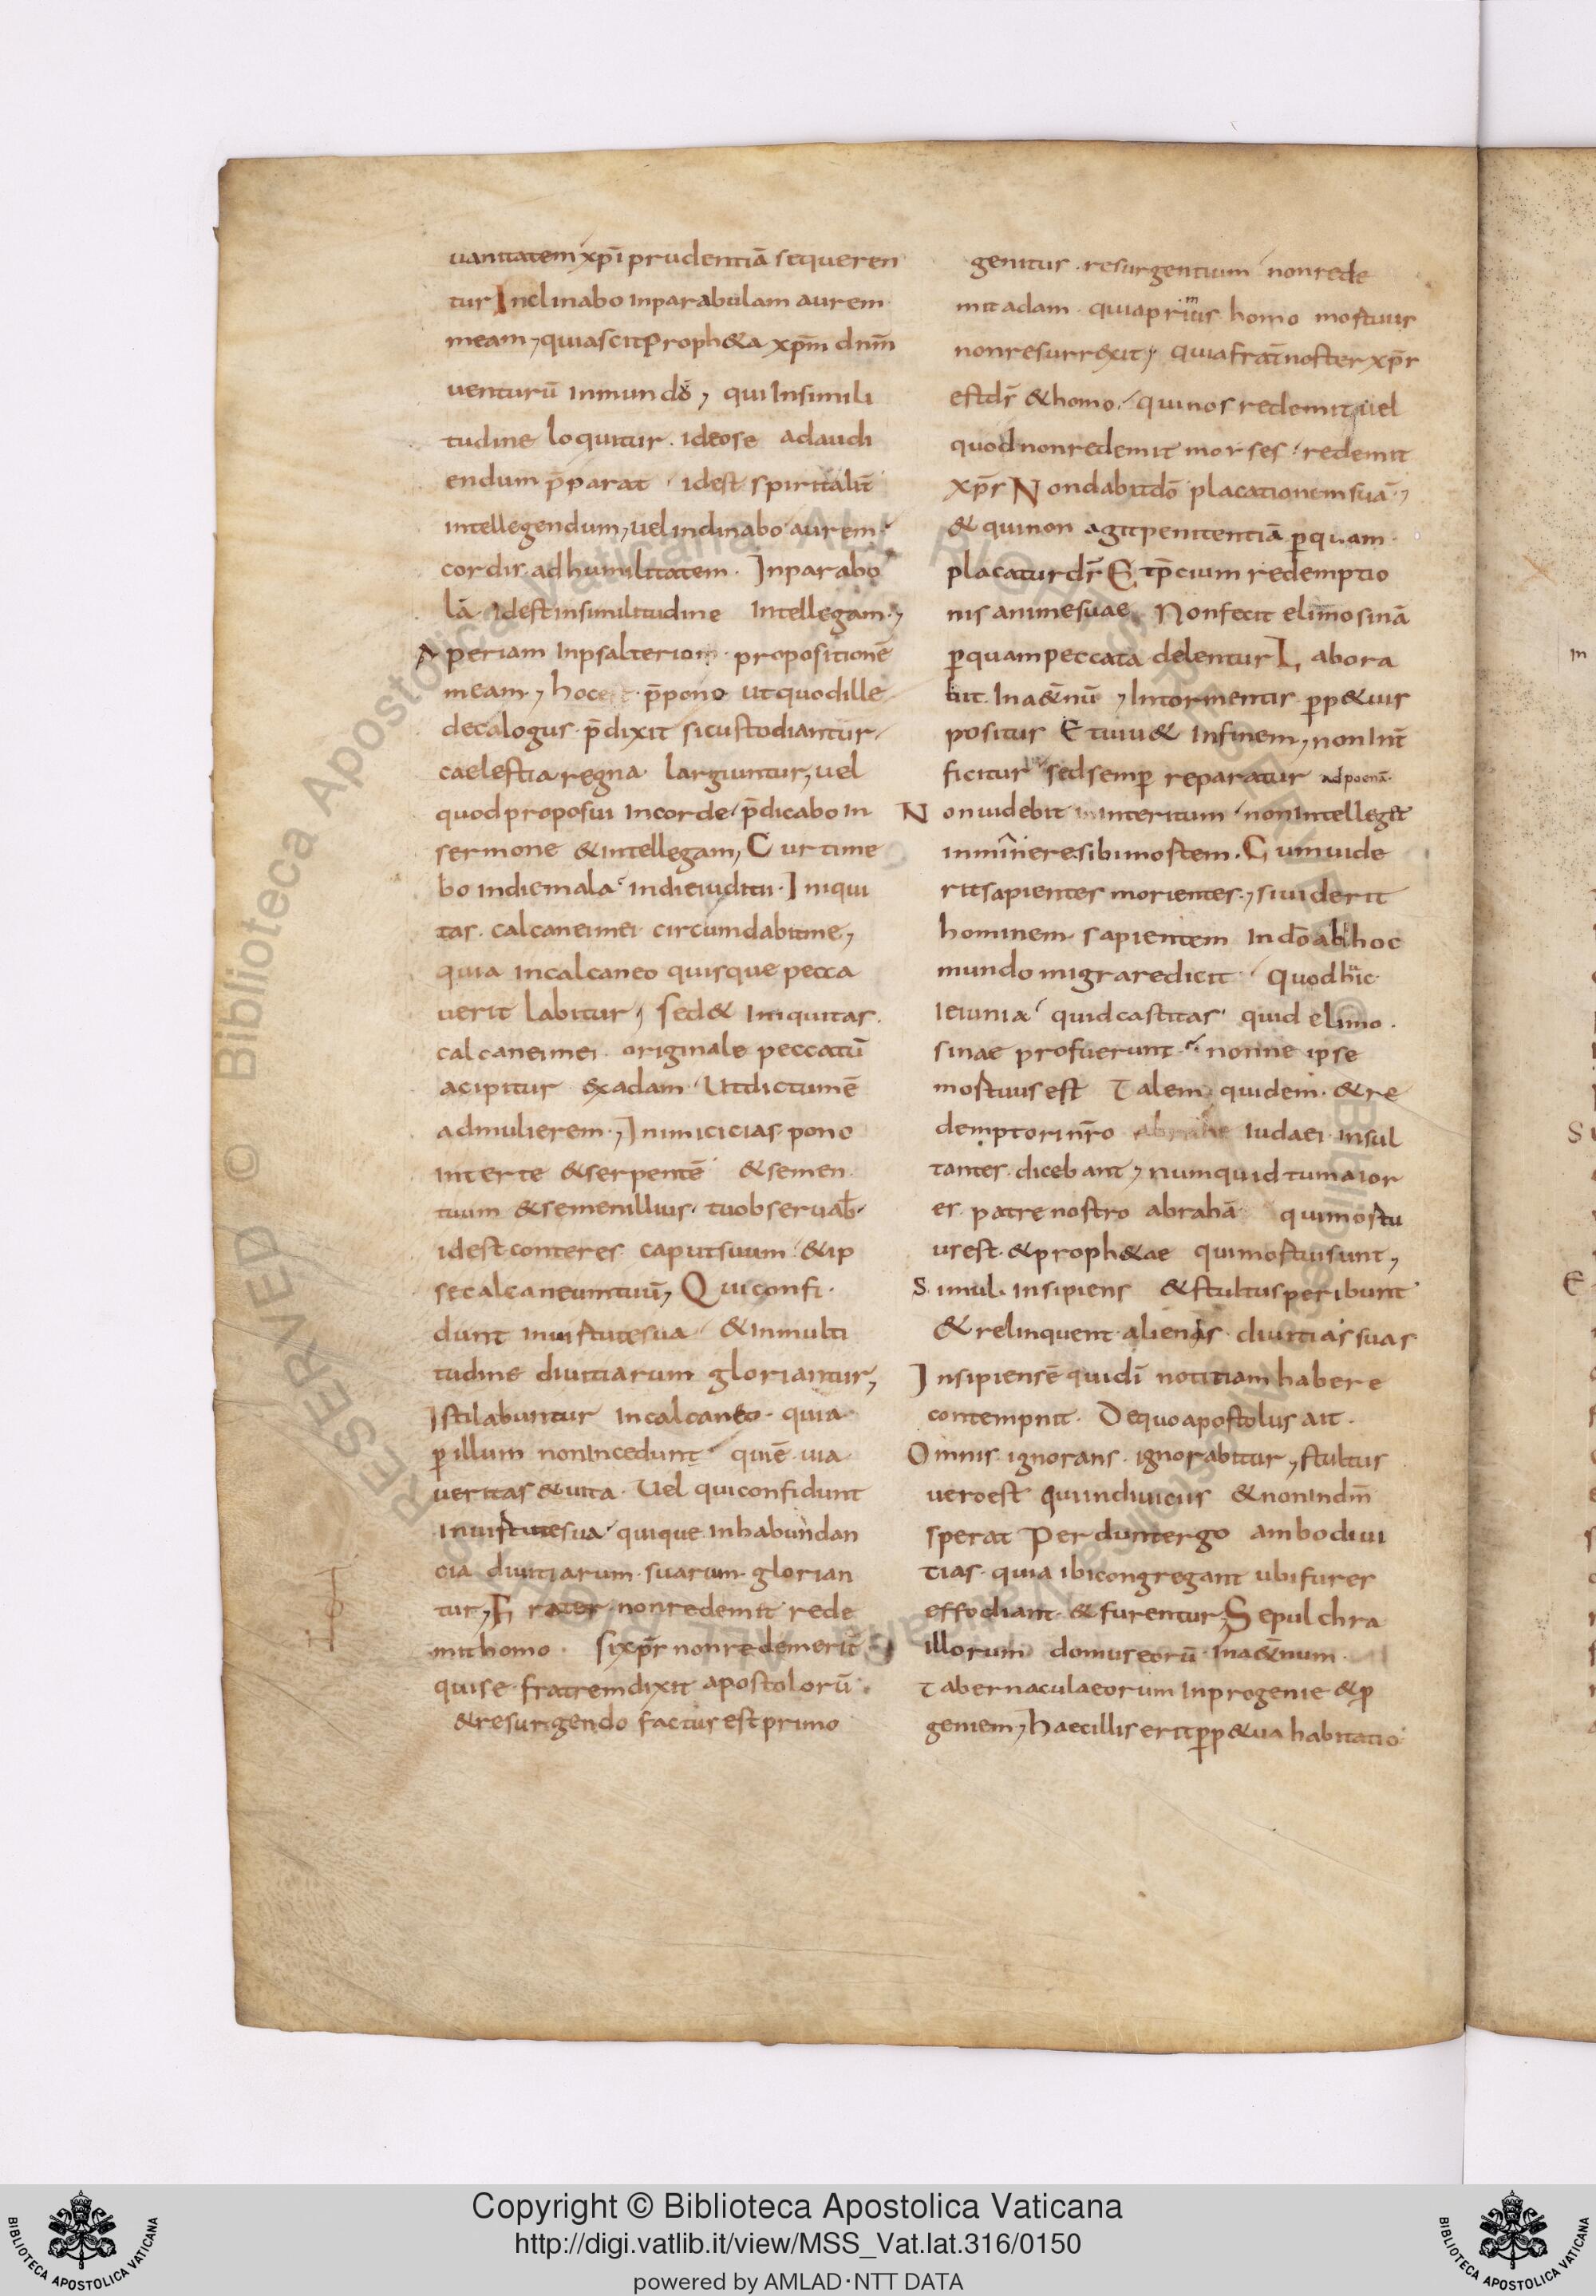 uanitatem xp̄i prudentiā sequeren
tur Inclinabo inparabulam aurem
meam, quiascit proph&a xp̄m dnm̄
uenturū inmundo, qui Insimili
tudine loquitur. ideose adaudi
endum p̄parat idest spiritalit̄
intellegendum, uel inclinabo aurem
cordis adhumilitatem. Inparabo
la idest insimilitudine Intellegam,
Aperiam Inpsalterio propositionē
meam, hoc p̄pono ut quodille
decalogus p̄dixit sicustodiantur
caelestia regna largiuntur, uel
quodproposui incorde p̄dicabo in
sermone &intellegam, Cur time
bo indiemala indieiuditii. Iniqui
tas calcaneimei circumdabitme,
quia incalcaneo quisque pecca
uerit labitur, sed& Iniquitas.
calcaneimei originale peccatū
acipitur exadam. Utdictumē
admulierem, Inimicicias pono
interte &serpentē &semen
tuum &semenillius. tuobseruab̄
idest conteres caputsuum &ip
secalcaneumtuū, Qui confi
dunt inuirtutesua &inmulti
tudine diuitiarum gloriantur,
Istilabuntur incalcaneo. quia
ꝑ illum nonIncedunt quiē uia
ueritas &uita. Uel quiconfidunt
Inuirtutesua quique Inhabundan
cia diuitiarum suarum glorian
tur, Frater nonredemit rede
mithomo. sixp̄s nonredemerit
quise fratremdixit apostolorū.
&resurgendo factus est primo
genitus resurgentium nonrede
mit adam quiaprimus homo mortuus
nonresurrexit, quiafrat̄ noster xp̄s
estds̄ &homo, quinos redemit uel
quodnonredemit morses redemit
xp̄s Nondabitdō placationemsuā,
& quinon agitpenitentiā ꝑquam
placaturds̄ Etp̄cium redemptio
nis animesuae. Nonfecit elimosinā
ꝑquampeccata delentur Labora
uit Ina&̄nū, Intormentis ꝑp&uis
positus Etuiu& Infinem, nonInt̄
ficitur sedsemꝑ reparatur adpoenā.
Nonuidebit interitum nonIntellegit
inminere sibimortem. Cumuide
ritsapientes morientes, siuiderit
hominem sapientem Indo abhoc
mundo migraredicit Quodhuic
ieiunia quidcastitas quid elimo
sinae profuerunt nonne ipse
mortuusest Talem quidem &re
demptorinr̄o abrahe Iudaei insul
tantes dicebant, numquid tumaior
es patrenostro abrahā quimortu
usest &proph&ae quimortuisunt,
Simul insipiens &stultusperibunt
&relinquent alienis diuitiassuas
Insipiensē quidī notitiamhabere
contempnit. Dequoapostolus ait.
Omnis ignorans ignorabitur, stultus
uero est quiindiuiciis &nonIndn̄o
sperat Perduntergo ambodiui
tias quia ibicongregant ubifures
effodiant &furentur, Sepulchra
illorum domuseorū Ina&̄num.
Tabernaculaeorum Inprogenie &ꝓ
geniem, haecillis eritꝑp&ua habitatio
Copyright © Biblioteca Apostolica Vaticana
http://digi.vatlib.it/view/MSS_Vat.lat.316/0150
powered by AMLAD·NTT DATA
BIBLIOTECA APOSTOLICA VATICANA
BIBLIOTECA APOSTOLICA VATICANA